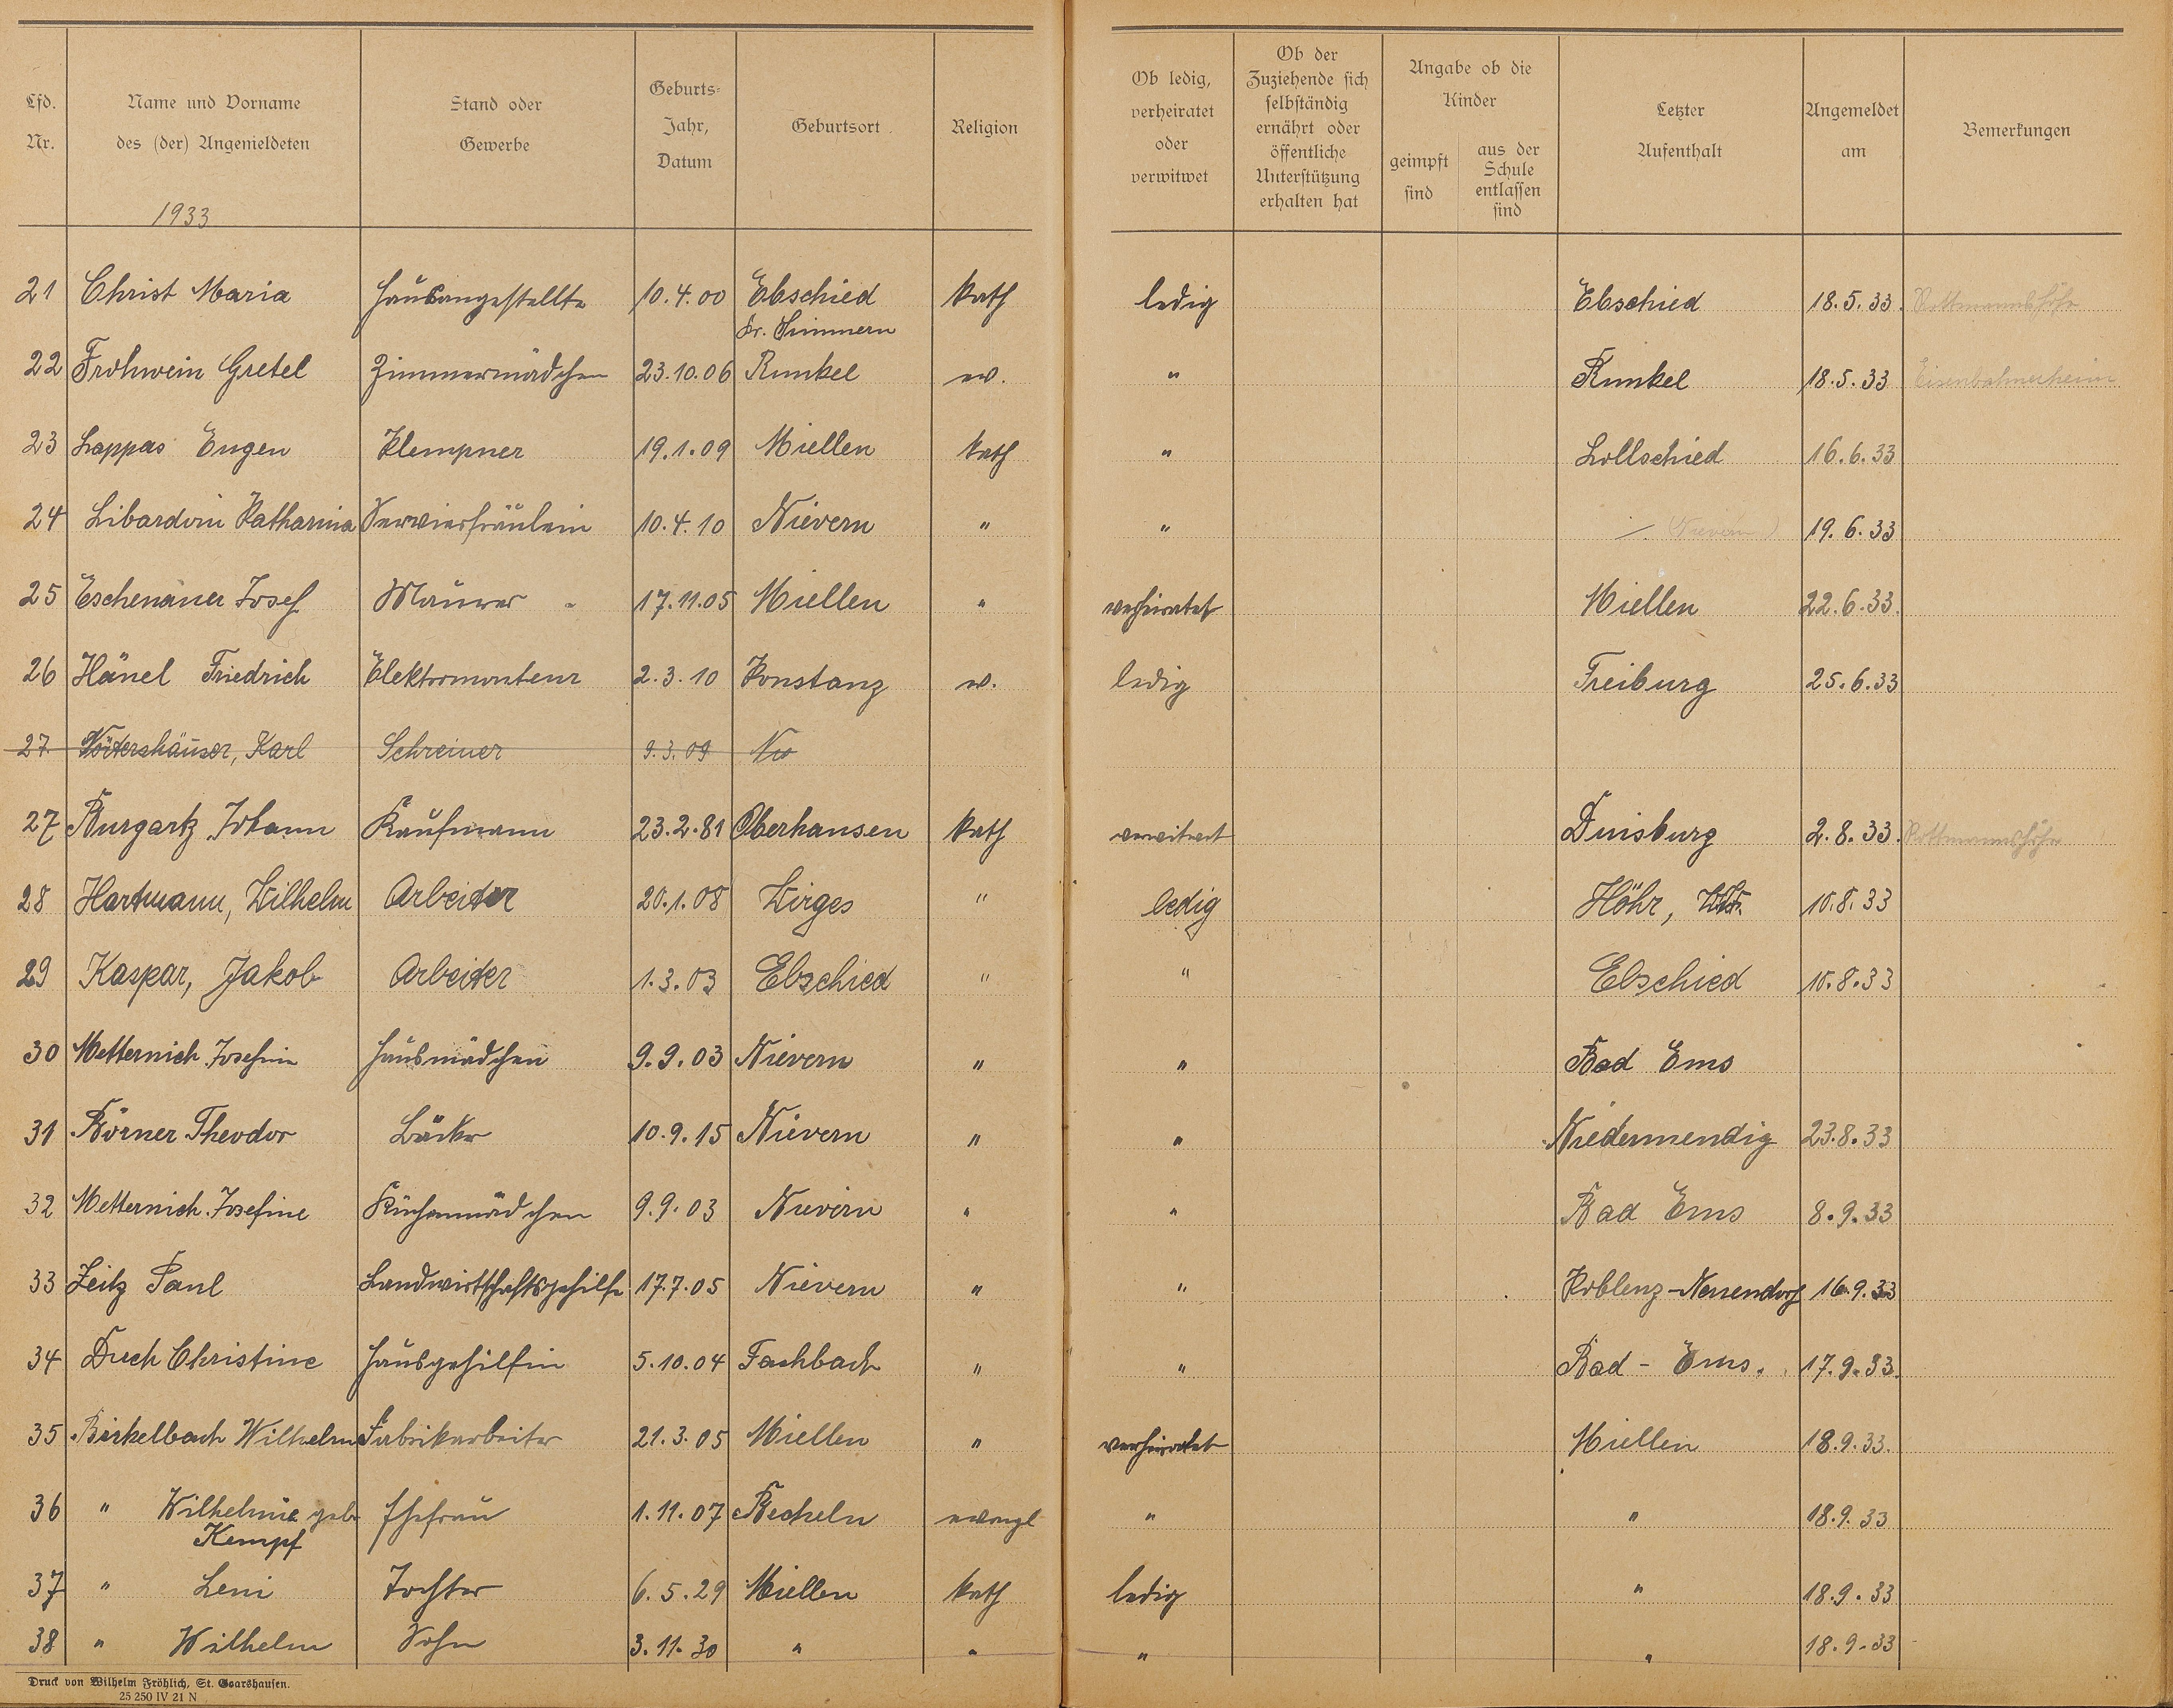 Lfd. Nr.
Name und Vorname des (der) Angemeldeten
Stand oder Gewerbe
Geburts-Jahr, Datum
Geburtsort
Religion
Ob ledig, verheiratet oder verwitwet
Ob der Zuziehende sich selbständig ernährt oder öffentliche Unterstützung erhalten hat
Angabe ob die Kinder
geimpft sind
aus der Schule entlassen sind
Letzter Aufenthalt
Angemeldet am
Bemerkungen
1933
21 Christ Maria Hausangestellte 10.4.00 Ebschied kath ledig Ebschied 18.5.33. Rottmannshöhe
Kr. Simmern
22 Frohwein Gretel Zimmermädchen 23.10.06 Runkel ev. " Runkel 18.5.33 Eisenbahnerheim
23 Lappas Eugen Klempner 19.1.09 Miellen kath " Lollschied 16.6.33
24 Libardoni Katharina Servierfräulein 10.4.10 Nievern " " /. (Nievern) 19.6.33
25 Eschenauer Josef Maurer 17.11.05 Miellen " verheiratet Miellen 22.6.33.
26 Hänel Friedrich Elektromonteur 2.3.10 Konstanz ev. ledig Freiburg 25.6.33
27. Wörtershäuser, Karl Schreiner 9.3.09
27 Burgartz Johann Kaufmann 23.2.81 Oberhausen kath verwitwet Duisburg 2.8.33. Rottmannshöhe
28 Hartmann, Wilhelm Arbeiter 20.1.08 Wirges " ledig Höhr, 10.8.33
29 Kaspar, Jakob Arbeiter 1.3.03 Ebschied " " Ebschied 10.8.33
30 Metternich Josefine Hausmädchen 9.9.03 Nievern " " Bad Ems
31 Börner Theodor Bäcker 10.9.15 Nievern " " Niedermendig 23.8.33
32 Metternich Josefine Küchenmädchen 9.9.03 Nievern " " Bad Ems 8.9.33
33 Zeitz Paul Landwirtschaftsgehilfe 17.7.05 Nievern " " Koblenz-Neuendorf 16.9.33
34 Duch Christine Hausgehilfin 5.10.04 Fachbach " " Bad-Ems. 17.9.33.
35 Birkelbach Wilhelm Fabrikarbeiter 21.3.05 Miellen " verheiratet Miellen 18.9.33.
36 " Wilhelmine geb. Ehefrau 1.11.07 Becheln evangl " " 18.9.33
Kempf
37 " Leni Tochter 6.5.29 Miellen kath ledig " 18.9.33
38 " Wilhelm Sohn 3.11.30 " " " " 18.9.33
Druck von Wilhelm Fröhlich, St. Goarshausen.
25 250 IV 21 N